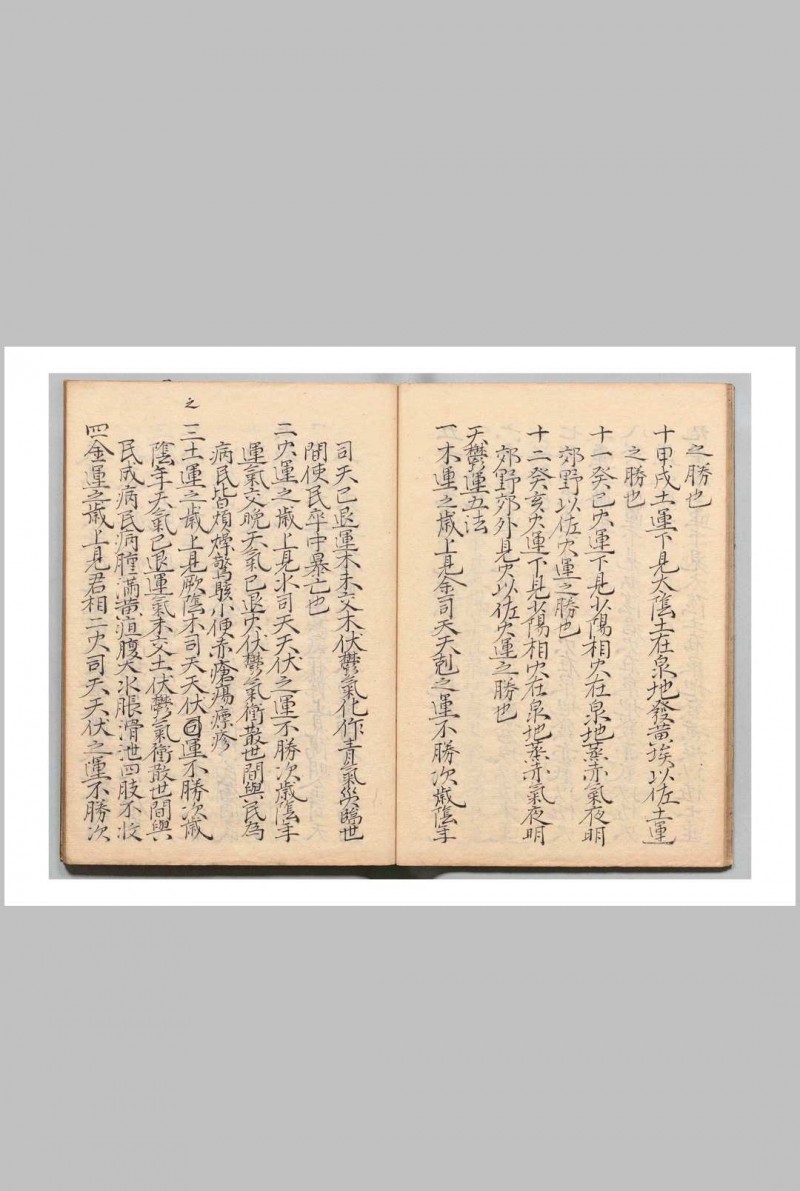 之勝也
十甲戌土運下見太陰土在泉地發黃埃以佐土運
之勝也
十一癸巳火運下見少陽相火在泉地蒸赤氣夜明
郊野以佐火運之勝也
十二癸亥火運下見少陽相火在泉地蒸赤氣夜明
郊野郊外見火以佐火運之勝也
天鬱運五法
一木運之歲上見金司天天剋之運不勝次歲陰年
司天已退運木未交木伏鬱氣化作青氣災臨世
間使民卒中暴亡也
二火運之歲上見水司天天伏之運不勝次歲陰年
運氣交晚天氣已退火伏鬱氣衝散世間與民為
病民皆煩燥驚駭小便赤瘡瘍瘭疹
三土運之歲上見厥陰木司天天伏運不勝次歲
之
陰年天氣已退運氣未交土伏鬱氣衝散世間與
民成病民病膧滿黃疸腹大水脹滑泄四肢不收
四金運之歲上見君相二火司天天伏之運不勝次